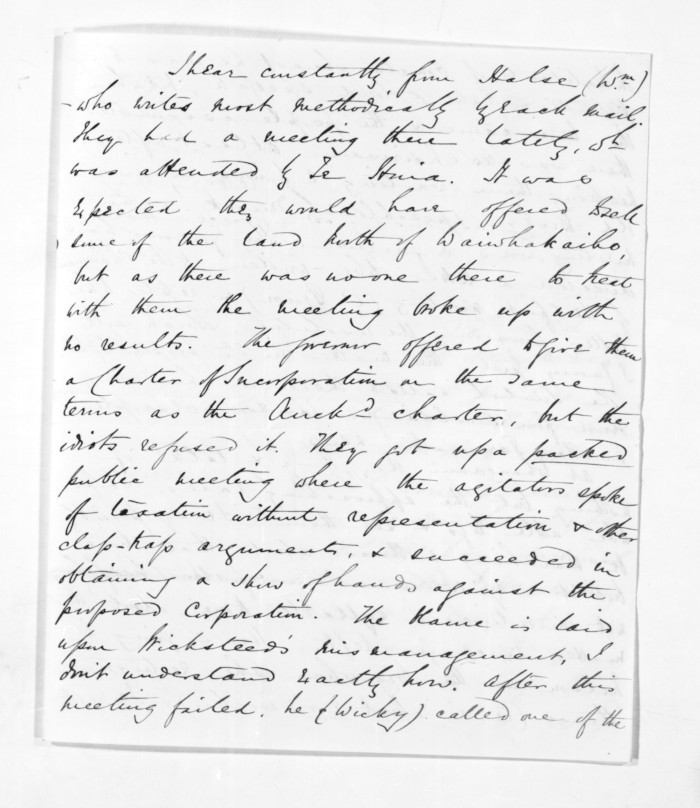 I hear constantly from Halse (Wm)
- who writes most methodically by each mail.
They had a meeting there lately, wh
was attended by Te Huia. It was
expected they would have offered to sell
some of the land North of Waiwhakaiho,
but as there was no one there to treat
with them the meeting broke up with
no results. The Governor offered to give them
a Charter of Incorporation on the same
terms as the Auckd charter, but the
idiots refused it. They got up a packed
public meeting where the agitators spoke
of taxation without representation & other
clap-trap arguments, & succeeded in
obtaining a show of hands against the
proposed Corporation. The blame is laid
upon Wicksteed's mismanagement, I
don't understand exactly how. After this
meeting failed, he (Wicky) called one of the